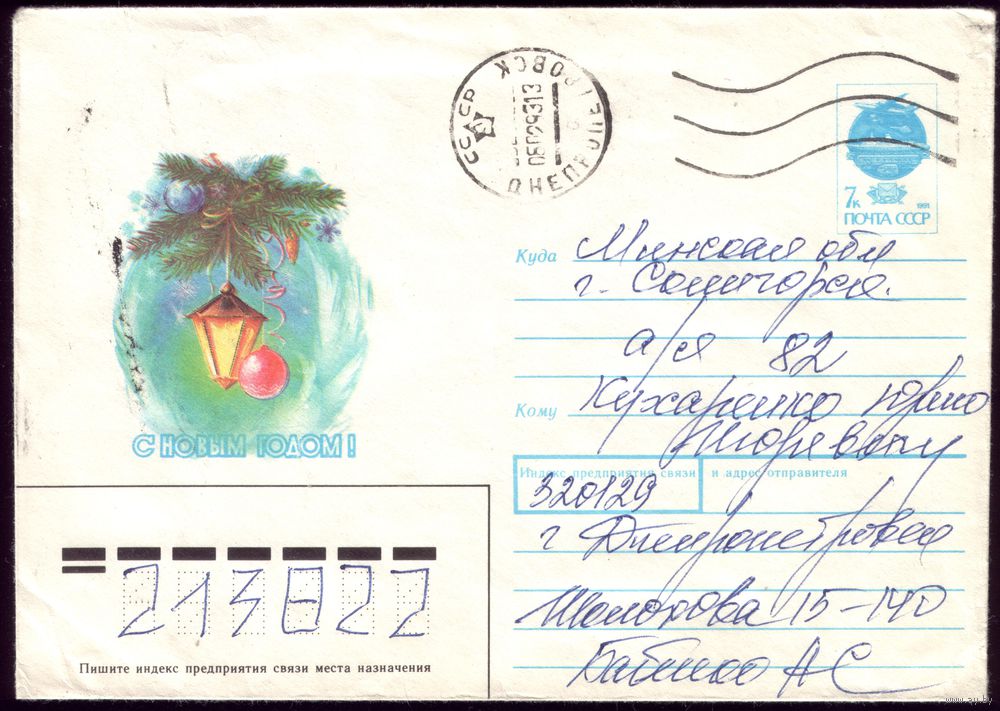 СССР ДНЕПРОПЕТРОВСК
0802931З
7к
1991
ПОЧТА СССР
Куда Минская обл
г. Солигорск.
а/я 82
Кому Кухаренко Юрию
Игоревичу
С НОВЫМ ГОДОМ!
Индекс предприятия связи и адрес отправителя
320129
г Днепропетровск
Шолохова 15-140
А С
213822
Пишите индекс предприятия связи места назначения
www.ay.by